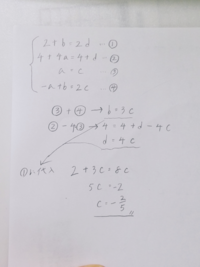 2 + b = 2d ― ①
4 + 4a = 4 + d ― ②
a = c ― ③
-a + b = 2c ― ④
③ + ④ → b = 3c
② - 4③ → 4 = 4 + d - 4c
d = 4c
①に代入 2 + 3c = 8c
5c = -2
c = -2/5